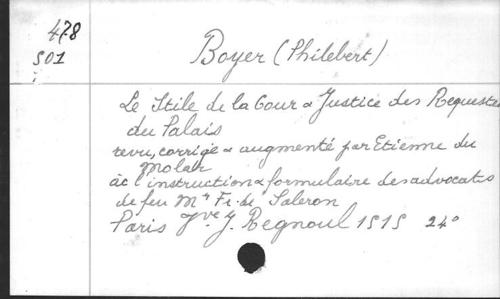 478
501
Boyer (Philebert)
Le Stile de la Cour & Justice des Requestes
du Palais
revu, corrigé & augmenté par Etienne du
Molar
àc l'instruction & formulaire des advocats
de feu Mr Fr. de Saleron
Paris Jve J. Regnoul 1515 24°